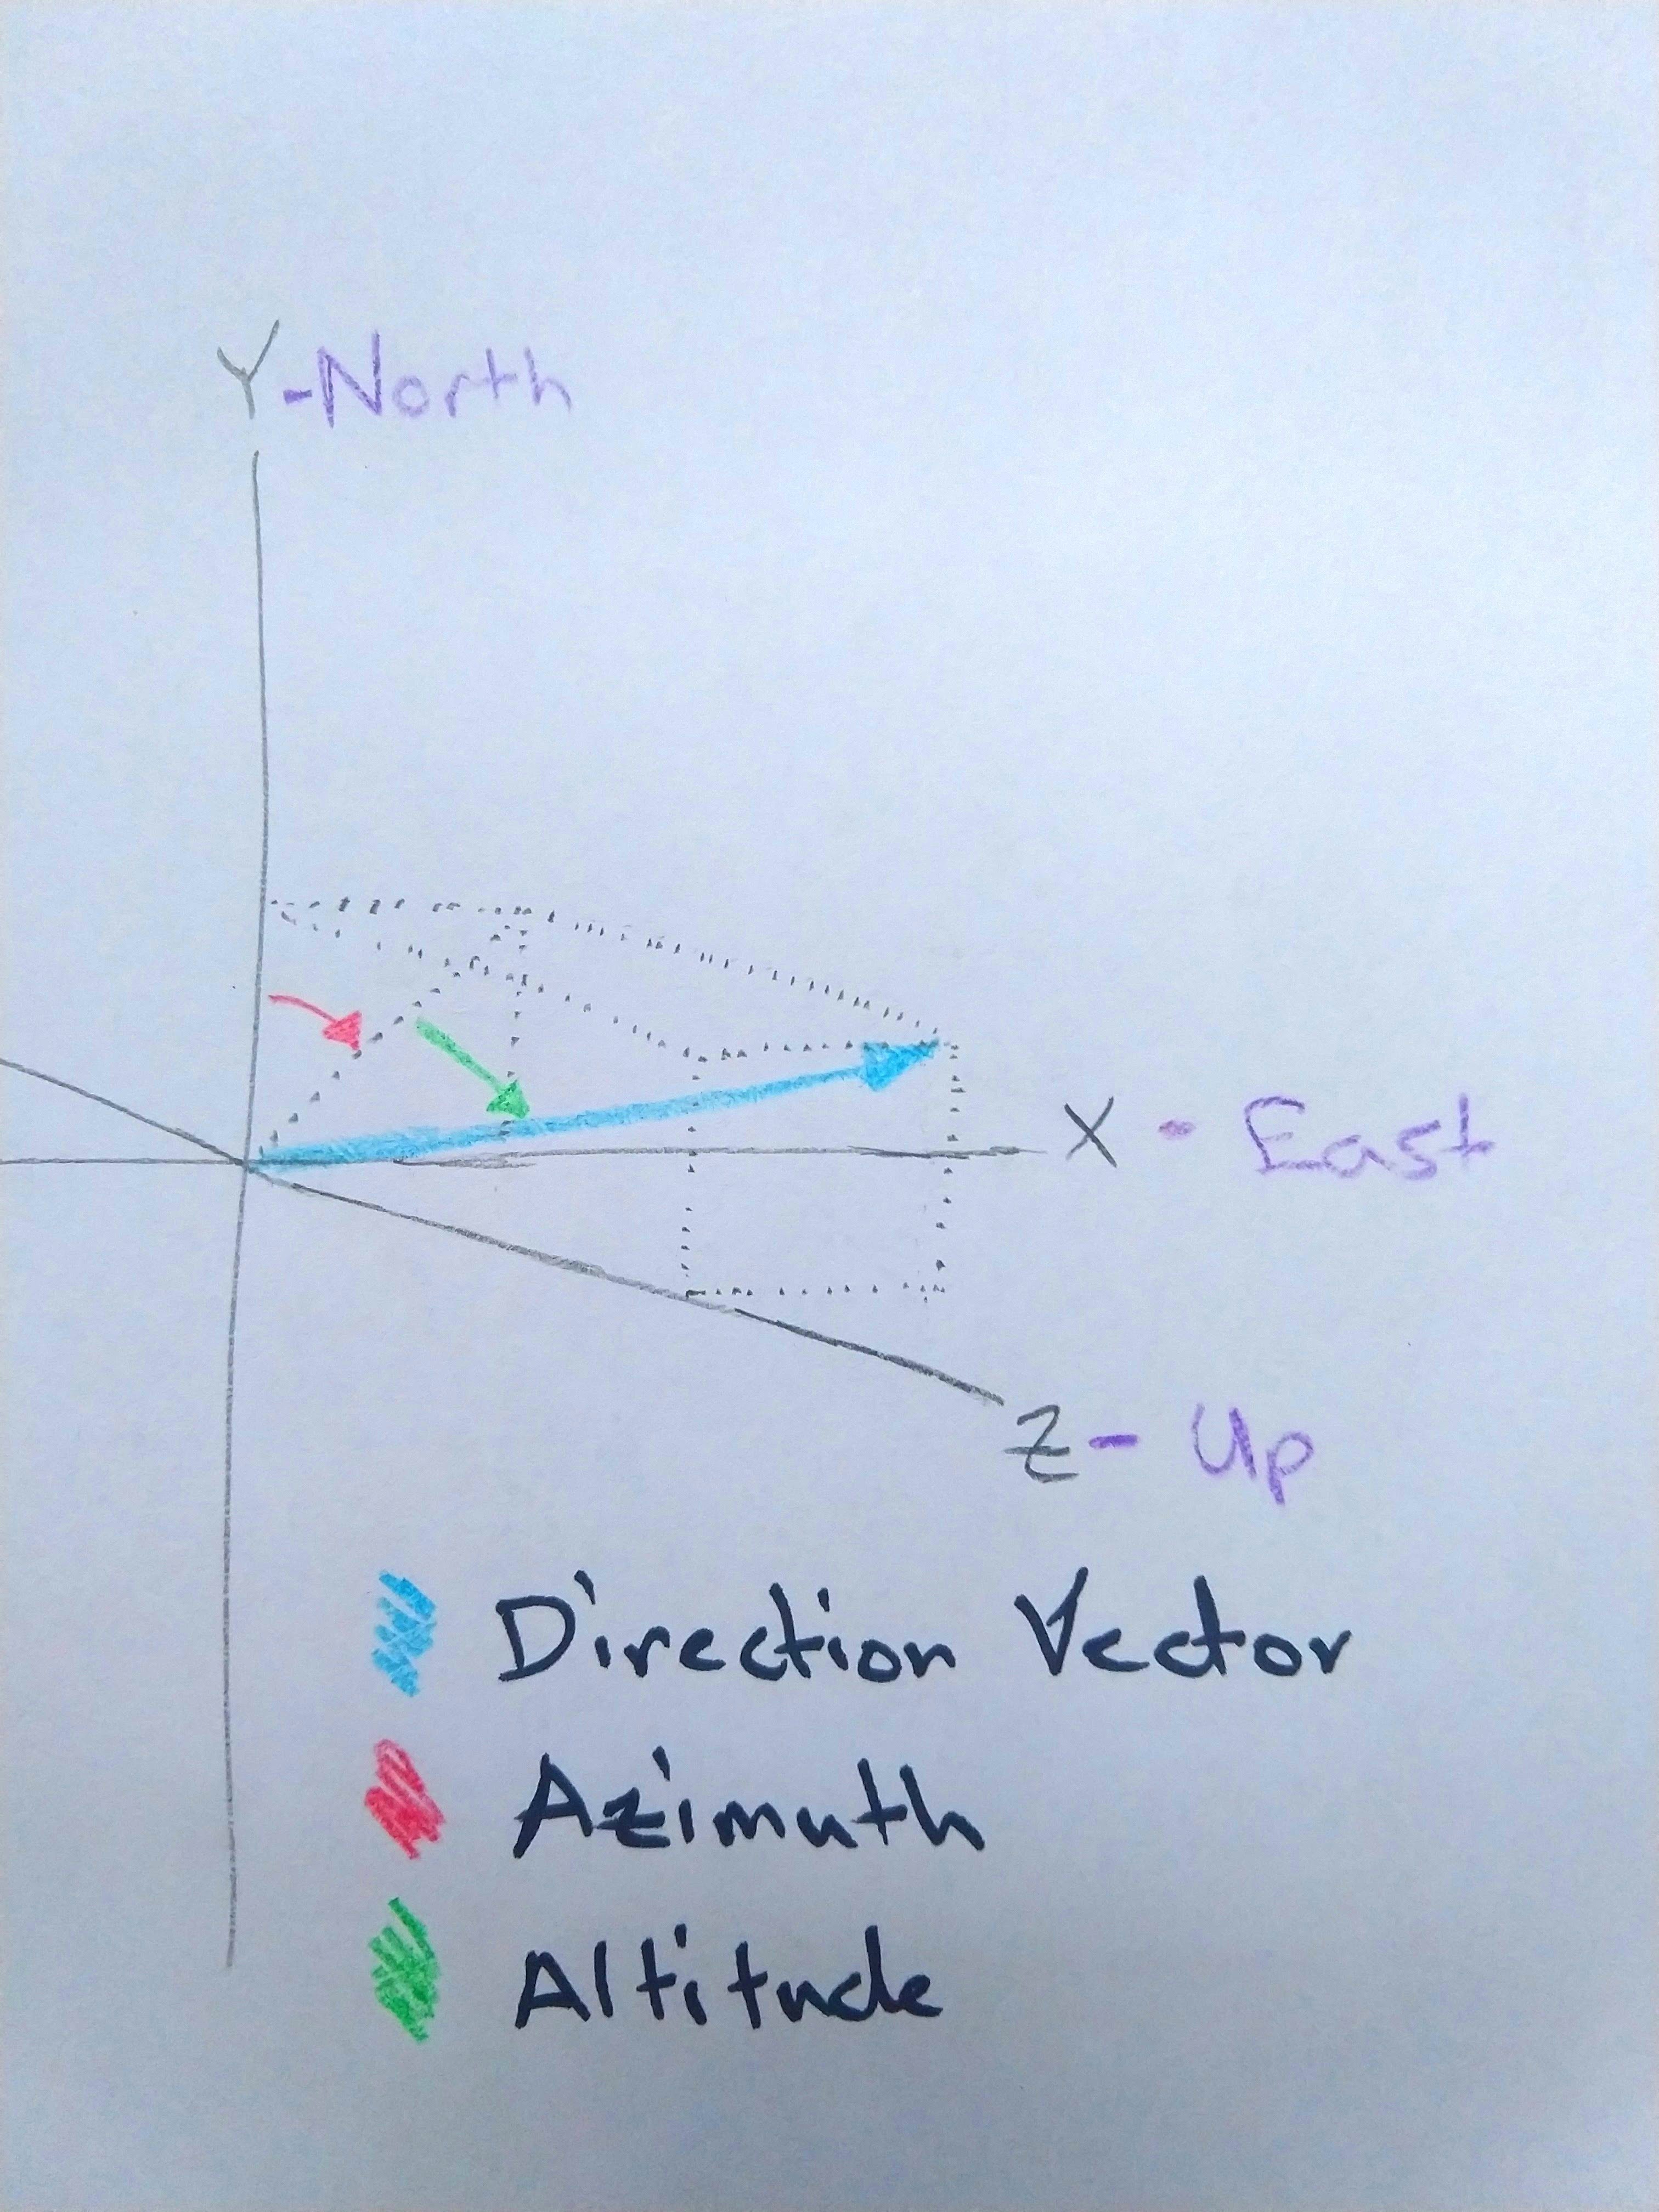 Y-North
X - East
Z- Up
Direction Vector
Azimuth
Altitude